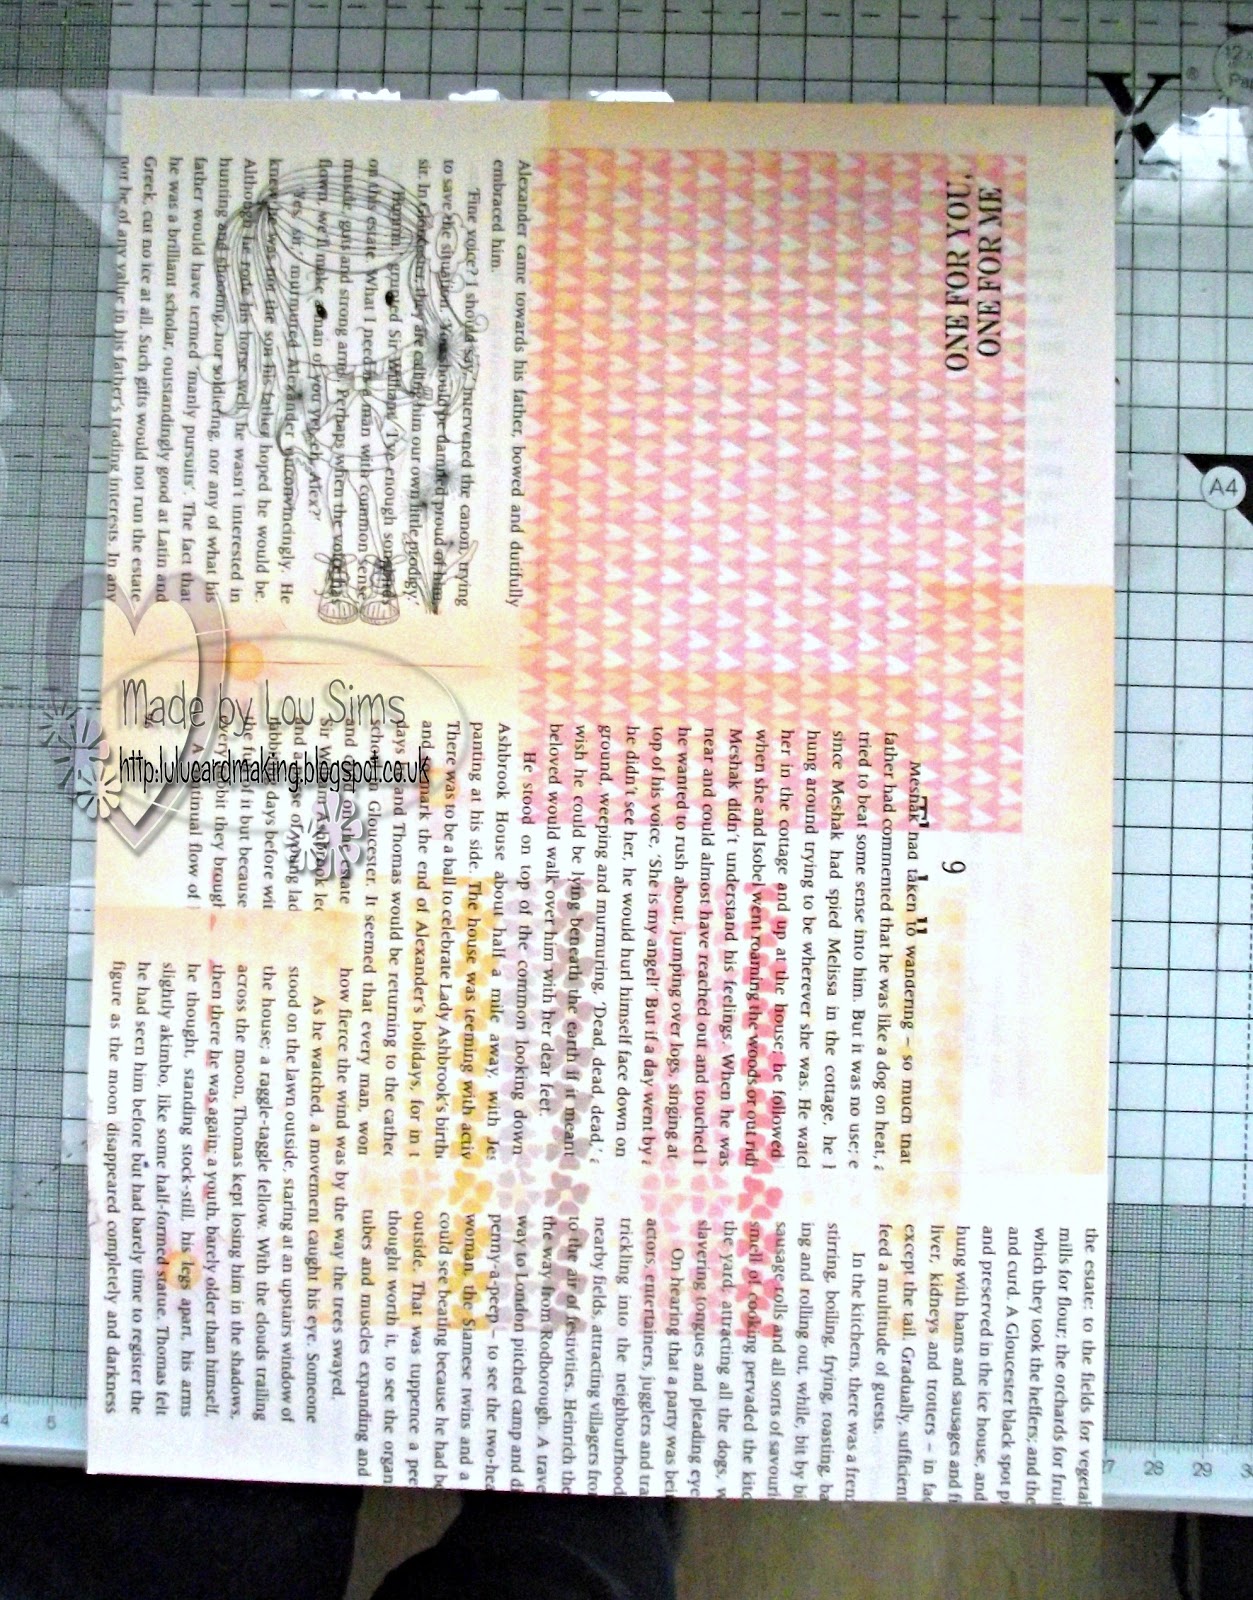 ONE FOR YOU,
ONE FOR ME
Alexander came towards his father, bowed and dutifully
embraced him.
'Fine voice? I should say,' intervened the canon, trying
to save the situation. 'You should be damned proud of him,
sir. In Gloucester they are calling him our own little prodigy.'
'Hmmm,' grunted Sir William. 'I've enough
on this estate. What I need is a man with common sense,
muscle, guts and strong arms. Perhaps when the voice
flown, we'll make a man of you yet, eh, Alex?'
'Yes, sir,' murmured Alexander unconvincingly. He
knew he was not the son his father hoped he would be.
Although he rode his horse well, he wasn't interested in
hunting and shooting, nor soldiering, nor any of what his
father would have termed 'manly pursuits'. The fact that
he was a brilliant scholar, outstandingly good at Latin and
Greek, cut no ice at all. Such gifts would not run the estate
nor be of any value in his father's trading interests. In any
9
Meshak had taken to wandering – so much that
father had commented that he was like a dog on heat, a
tried to beat some sense into him. But it was no use; e
since Meshak had spied Melissa in the cottage, he l
hung around trying to be wherever she was. He watch
her in the cottage and up at the house; he followed
when she and Isobel went roaming the woods or out ridi
Meshak didn't understand his feelings. When he was
near and could almost have reached out and touched h
he wanted to rush about, jumping over logs, singing at
top of his voice, 'She is my angel!' But if a day went by a
he didn't see her, he would hurl himself face down on
ground, weeping and murmuring, 'Dead, dead, dead,' a
wish he could be lying beneath the earth if it meant
beloved would walk over him with her dear feet.
He stood on top of the common looking down
Ashbrook House about half a mile away, with Jes
panting at his side. The house was teeming with activ
There was to be a ball to celebrate Lady Ashbrook's birthd
and mark the end of Alexander's holidays, for in t
days and Thomas would be returning to the cathed
school in Gloucester. It seemed that every man, won
and on the estate
Sir Ashbrook led
and of young lad
days before wit
the of it but because
every bit they brough
A continual flow of
how fierce the wind was by the way the trees swayed.
As he watched, a movement caught his eye. Someone
stood on the lawn outside, staring at an upstairs window of
the house; a raggle-taggle fellow. With the clouds trailing
across the moon, Thomas kept losing him in the shadows,
then there he was again; a youth, barely older than himself,
he thought, standing stock-still, his legs apart, his arms
slightly akimbo, like some half-formed statue. Thomas felt
he had seen him before but had barely time to register the
figure as the moon disappeared completely and darkness
the estate: to the fields for vegetal
mills for flour; the orchards for fruit
which they took the heffers; and the
and curd. A Gloucester black spot pi
and preserved in the ice house, and
hung with hams and sausages and fi
liver, kidneys and trotters – in fac
except the tail. Gradually, sufficient
feed a multitude of guests.
In the kitchens, there was a fren
stirring, boiling, frying, roasting, ba
ing and rolling out, while, bit by bi
sausage rolls and all sorts of savouri
smell of cooking pervaded the kitc
the yard, attracting all the dogs, w
slavering tongues and pleading eye
On hearing that a party was bei
actors, entertainers, jugglers and tra
trickling into the neighbourhood
nearby fields, attracting villagers fro
to the air of festivities. Heinrich the
the way from Rodborough. A trave
way to London pitched camp and di
penny-a-peep – to see the two-hea
woman, the Siamese twins and a
could see beating because he had be
outside. That was tuppence a peep
thought worth it, to see the organ
tubes and muscles expanding and
Made by Lou Sims
http:lulucardmaking.blogspot.co.uk
A4
4 5
27 28 29 30